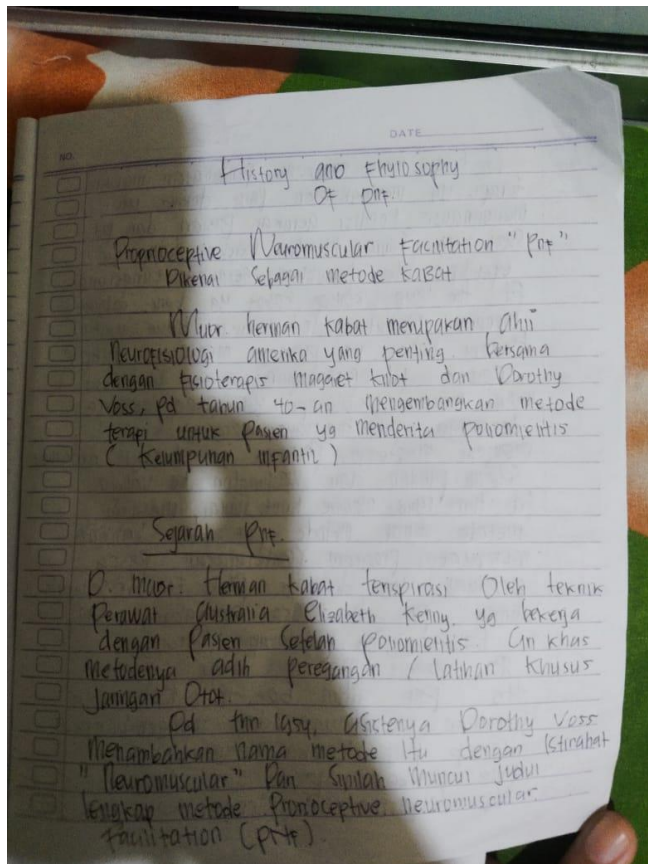 NO.
DATE
History and Fhylosophy
Of pnf.
Proprioceptive Neuromuscular Facilitation "pnf"
Dikenal Sebagai metode KABAT
herman kabat merupakan ahli
neurofisiologi amerika yang penting bersama
dengan fisioterapis magaret knot dan Dorothy
Voss, pd tahun 40-an mengembangkan metode
terapi untuk pasien yg menderita poliomielitis
( Kelumpuhan infantil )
Sejarah pnf.
D. Herman kabat terispirasi Oleh teknik
perawat Australia Elizabeth Kenny. yg bekerja
dengan pasien Setelah poliomielitis. Ciri khas
metodenya adlh peregangan / latihan khusus
Jaringan Otot.
Pd thn 1954, Dorothy Voss
menambahkan nama metode itu dengan
"Neuromuscular" Dan Sinilah muncul judul
lengkap metode neuromuscular
Facilitation (pnf).